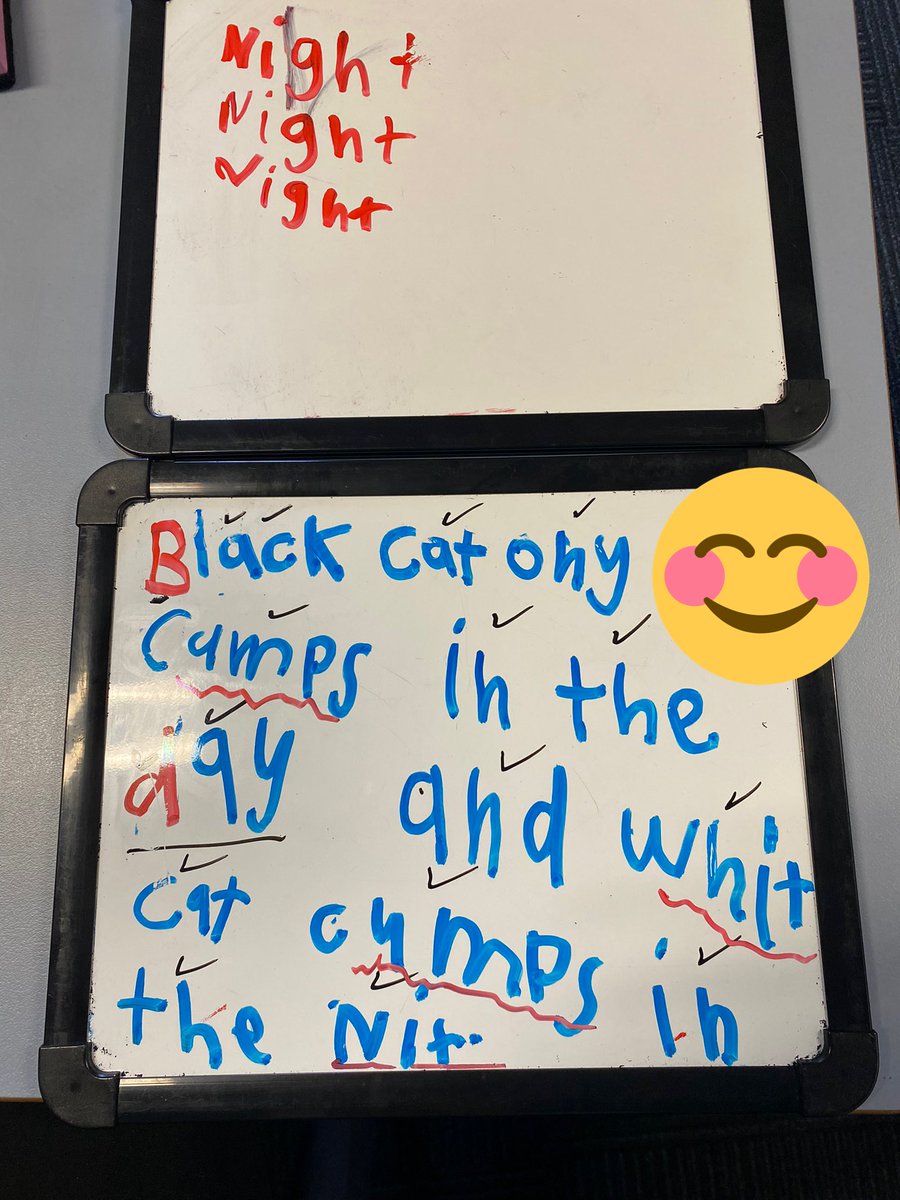 Night
Night
Night
Black cat ony
Camps in the
day and whit
cat cumps in
the Nit.